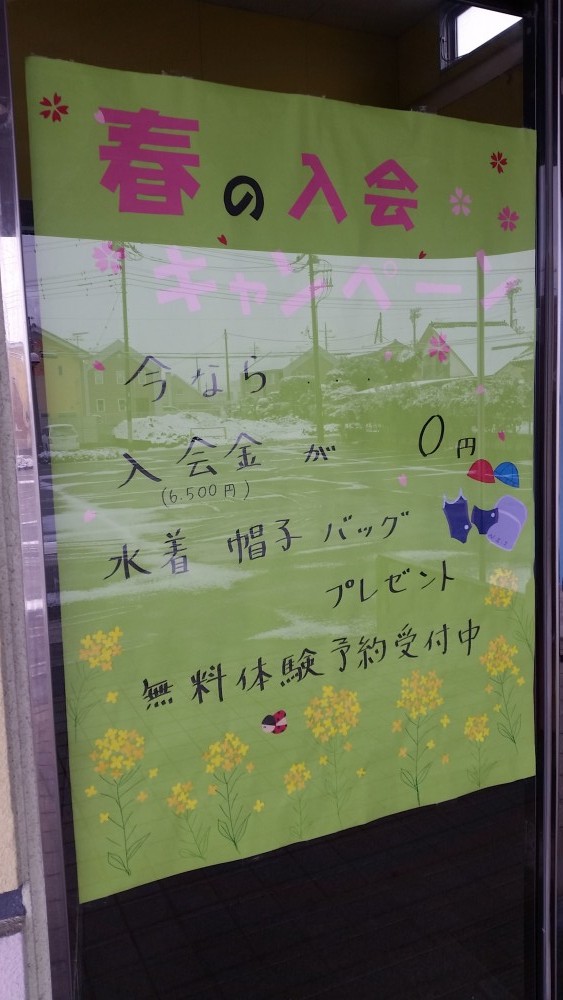 春の入会
キャンペーン
今なら....
入会金が 0円
(6.500円)
水着 帽子 バッグ
プレゼント
無料体験予約受付中